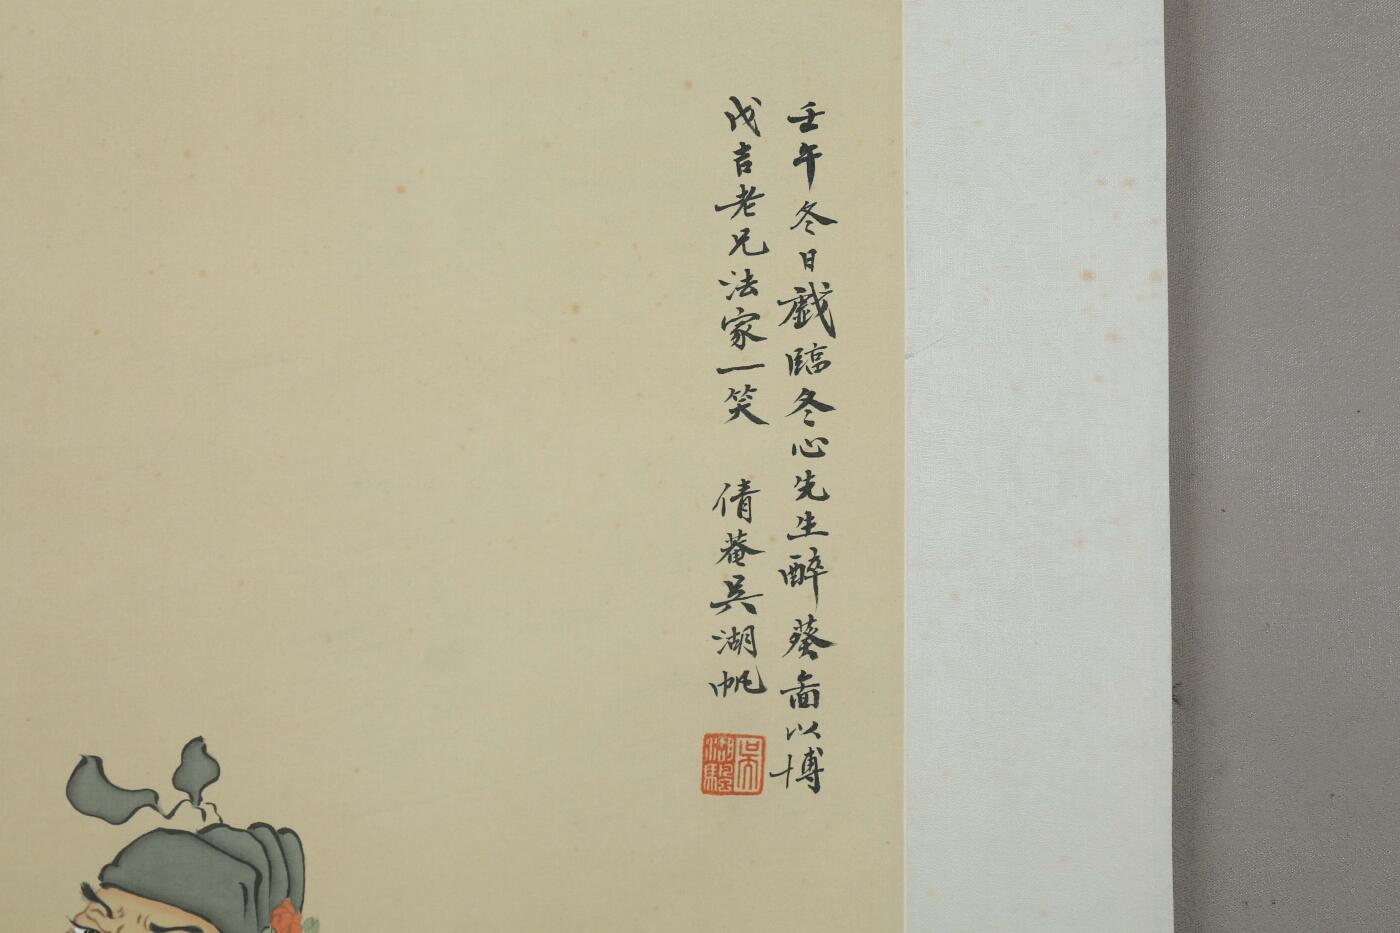 壬午冬日戲臨冬心先生醉葵啚以博
戊吉老兄法家一笑 倩菴吳湖帆
吳湖颿